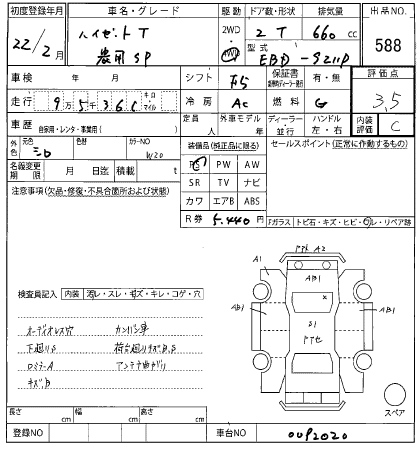 初度登録年月 車名・グレード 駆動 ドア数・形状 排気量 出品NO.
22/2月 ハイゼットT 農用SP 2WD 4WD 2 T 660 cc 588
型式 EBD-S211P
車検 年 月 シフト F5 保証書 有・無 評価点
走行 9万5千361 キロ マイル 冷房 AC 燃料 G 3.5
車歴 自家用・レンタ・事業用( ) 定員 人 外車モデル 年 ディーラー・並行 ハンドル 左・右 内装評価 C
外色 元色 シロ 色替 カラーNO W20 装備品(純正品に限る) セールスポイント(正常に作動するもの)
名義変更期限 月 日 積載 t
PS PW AW
SR TV ナビ
カワ エアB ABS
R券 5,440円
注意事項(欠品・修復・不具合箇所および状態)
Fガラス トビ石・キズ・ヒビ・ワレ・リペア跡
検査員記入 内装 汚レ・スレ・キズ・キレ・コゲ・穴
オーディオレス穴 カンバン車
下廻りS 荷台廻りキズB,S
ロミラーA アンテナ曲ガリ
キズ,B
A1 アケ A2
AB1
AB1 AB1
S1
アケセ
スペア
長さ cm 幅 cm 高さ cm
登録NO 車台NO 0092020